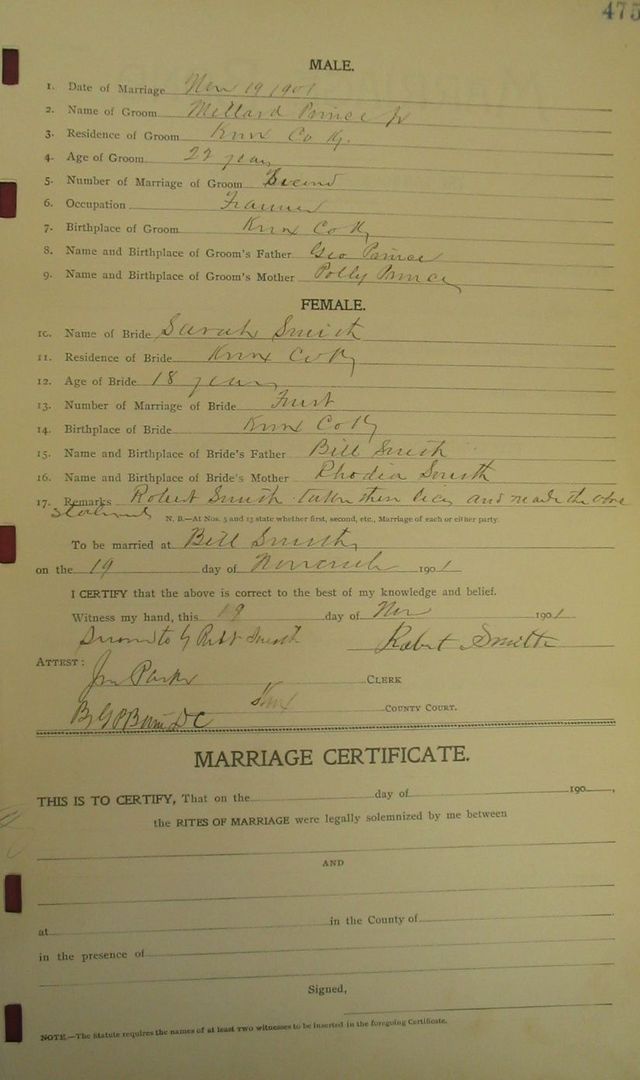 475
MALE.
1. Date of Marriage Nov 19 1901
2. Name of Groom Millard Prince Jr
3. Residence of Groom Knox Co Ky.
4. Age of Groom 22 years
5. Number of Marriage of Groom Second
6. Occupation Farmer
7. Birthplace of Groom Knox Co Ky
8. Name and Birthplace of Groom's Father Geo Prince
9. Name and Birthplace of Groom's Mother Polly Prince
FEMALE.
10. Name of Bride Sarah Smith
11. Residence of Bride Knox Co Ky
12. Age of Bride 18 years
13. Number of Marriage of Bride First
14. Birthplace of Bride Knox Co Ky
15. Name and Birthplace of Bride's Father Bill Smith
16. Name and Birthplace of Bride's Mother Rhodia Smith
17. Remarks Robert Smith and made the
N. B.—At Nos. 5 and 13 state whether first, second, etc., Marriage of each or either party.
To be married at Bill Smiths
on the 19 day of November 1901
I CERTIFY that the above is correct to the best of my knowledge and belief.
Witness my hand, this 19 day of Nov 1901
Sworn to by Robt Smith Robert Smith
ATTEST:
Jno Parker CLERK
Knox COUNTY COURT.
By DC
MARRIAGE CERTIFICATE.
THIS IS TO CERTIFY, That on the day of 190 ,
the RITES OF MARRIAGE were legally solemnized by me between
AND
at in the County of
in the presence of
Signed,
NOTE.—The Statute requires the names of at least TWO witnesses to be inserted in the foregoing Certificate.